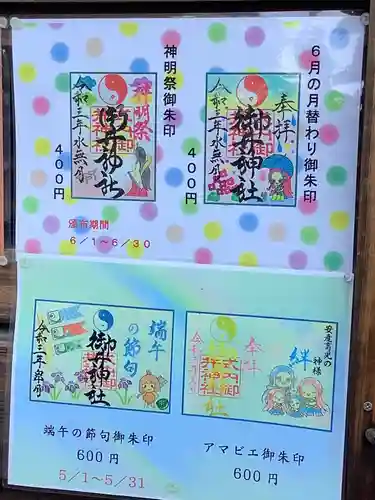 6月の月替わり御朱印
奉拝
御井神社
令和三年水無月
400円
神明祭御朱印
神明祭
御井神社
令和三年水無月
400円
頒布期間
6/1～6/30
端午の節句
御井神社
令和三年皐月
端午の節句御朱印
600円
5/1～5/31
安産育児の神様
絆
奉拝
式内
アマビエ御朱印
600円